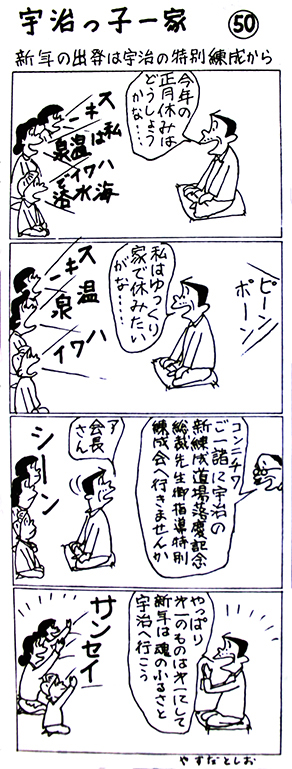 宇治っ子一家
50
新年の出発は宇治の特別練成から
今年の
正月休みは
どうしよう
かな……
スキー
私は
温泉
ハワイで
海水浴
ピーン
ポーン
私はゆっくり
家で休みたい
がな……
スキー
温泉
ハワイ
コンニチワ
ご一諸に宇治の
新練成道場落慶記念
総裁先生御指導特別
練成会へ行きませんか
ア
会長
さん
シーン
やっぱり
第一のものは第一にして
新年は魂のふるさと
宇治へ行こう
サンセイ
やすだとしお